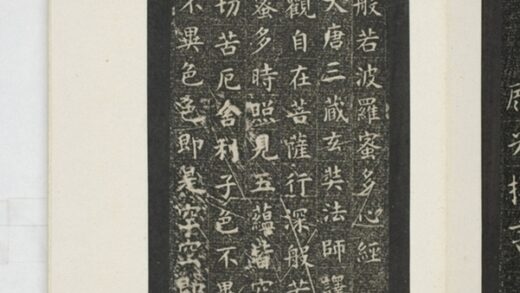 般若波羅蜜多心經
大唐三藏玄奘法師譯
觀自在菩薩行深般若
蜜多時照見五蘊皆空
切苦厄舍利子色不異
不異色色即是空空即